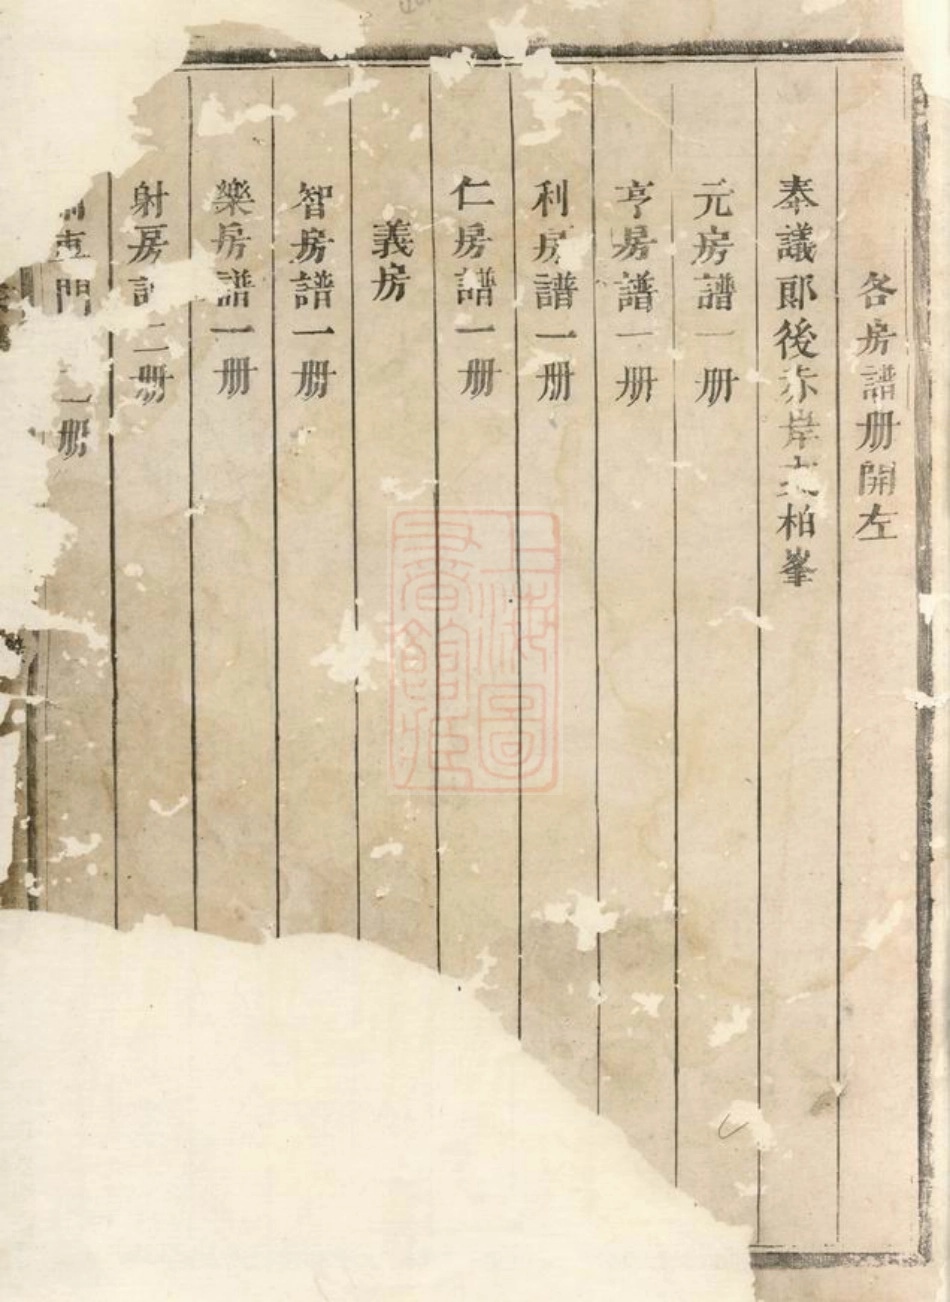 各房譜册開左
奉議郎後赤岸 柏峯
元房譜一册
亨房譜一册
利房譜一册
仁房譜一册
義房
智房譜一册
樂房譜一册
射房譜二册
門 一册
上海圖
書館藏